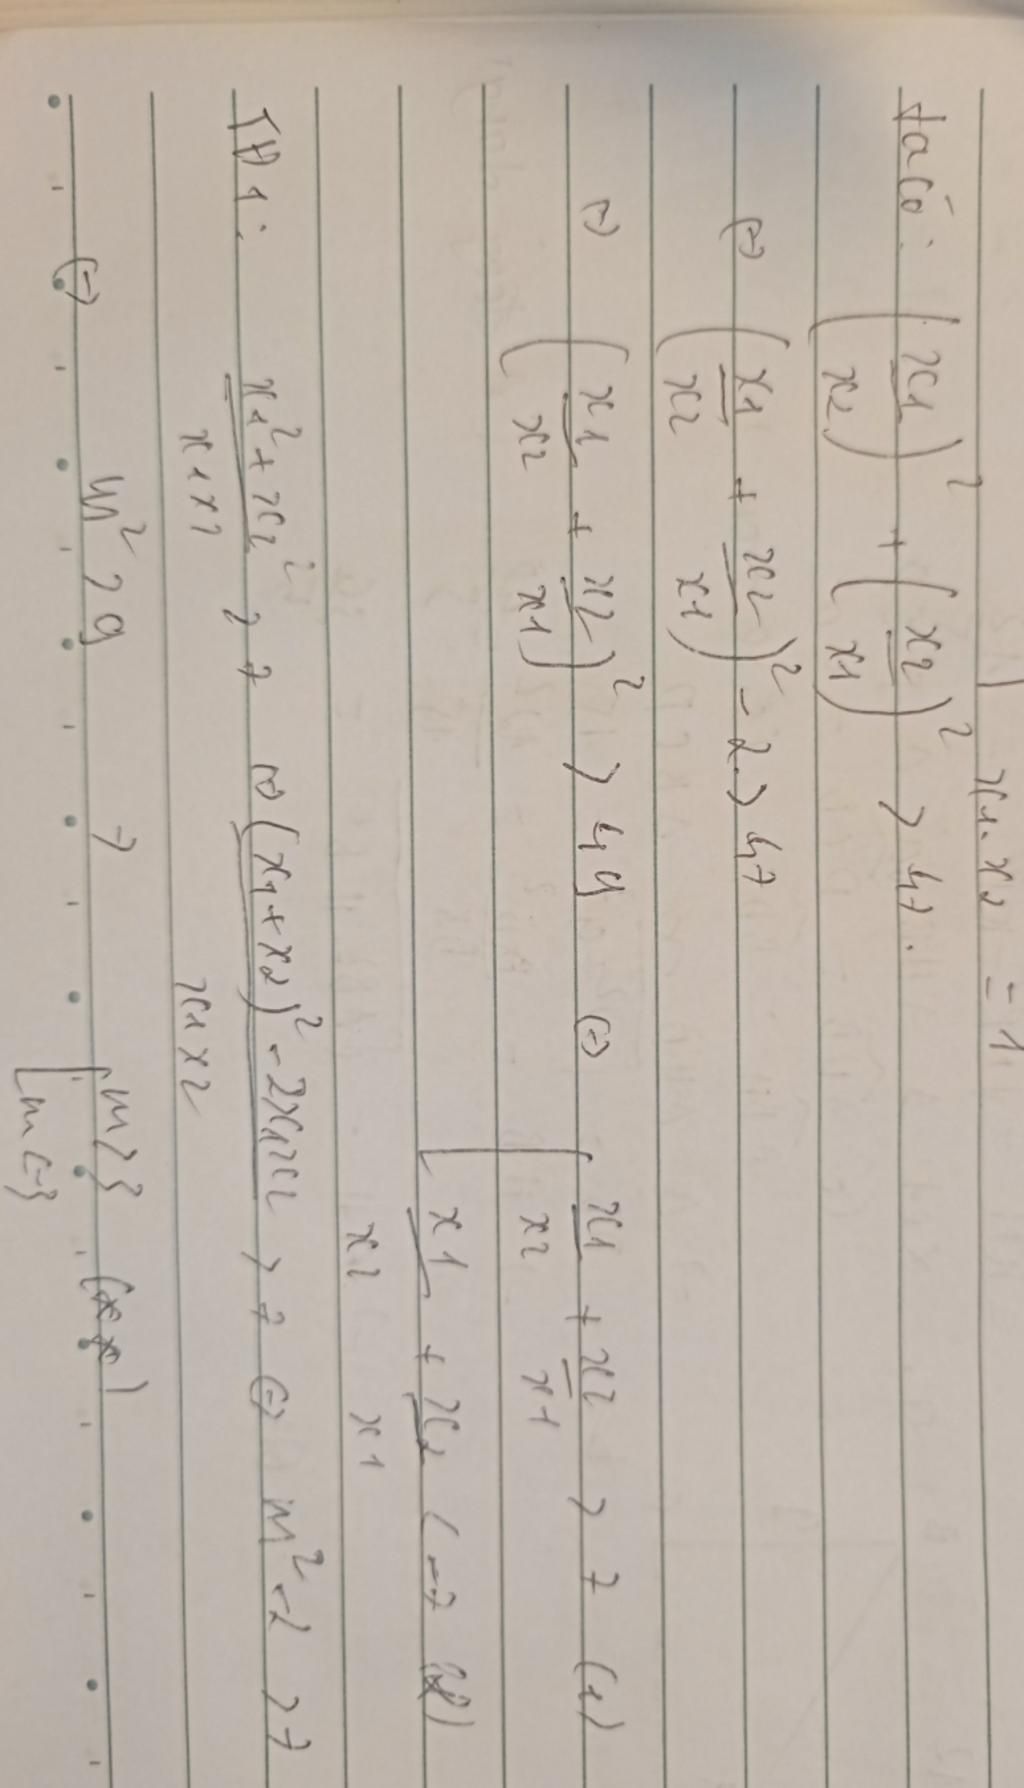 x1.x2 = 1
Ta có: (x1/x2)² + (x2/x1)² > 47.
(=) (x1/x2 + x2/x1)² - 2 > 47
(=) (x1/x2 + x2/x1)² > 49 (=) [ x1/x2 + x2/x1 > 7 (1)
x1/x2 + x2/x1 < -7 (2)
TH1: (x1² + x2²)/(x1x2) > 7 (=) ((x1+x2)² - 2x1x2)/(x1x2) > 7 (=) m² - 2 > 7
(=) m² > 9 => [ m > 3 (**)
m < -3